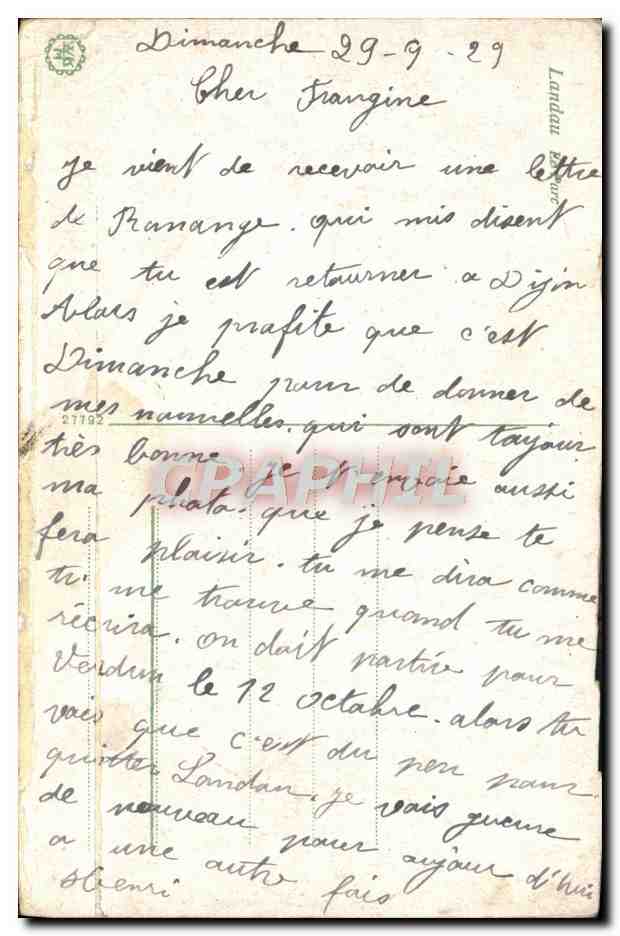 Dimanche 29-9-29
Cher Frangine
Landau
je vient de recevoir une lettre
de Ranange. qui mis disent
que tu est retourner a Dijin
Alors je profite que c'est
Dimanche pour de donner de
mes nouvelles. qui sont toujour
27792
très bonne. je t'envoie aussi
ma photo. que je pense te
fera plaisir. tu me dira comme
tu me trouve quand tu me
récrira. on doit partire pour
Verdun le 12 octobre. alors tu
vois que c'est du peu pour
quitter Landau. je vois guerre
de nouveau pour aujour d'hui
a une autre fois
Henri
CPAPHIL